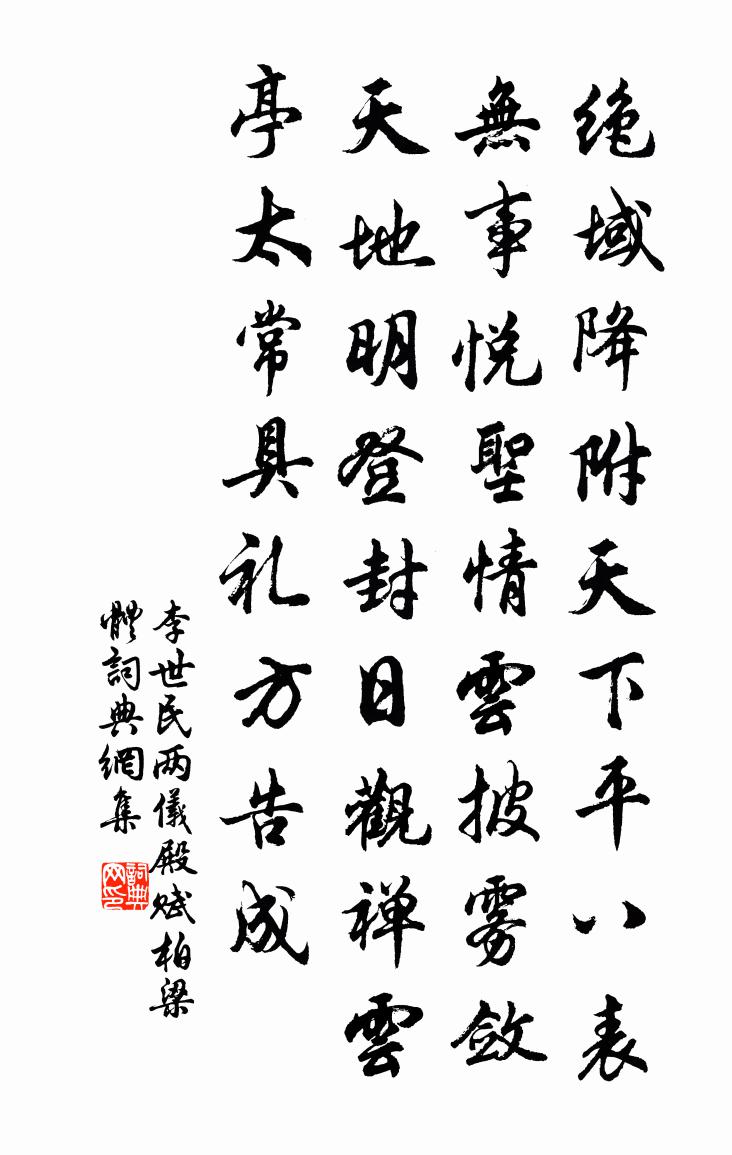 绝域降附天下平八表
無事悦聖情雲披雾斂
天地明登封日觀禅雲
亭太常具礼方告成
李世民两儀殿赋柏梁
體詞典網集
詞典网印